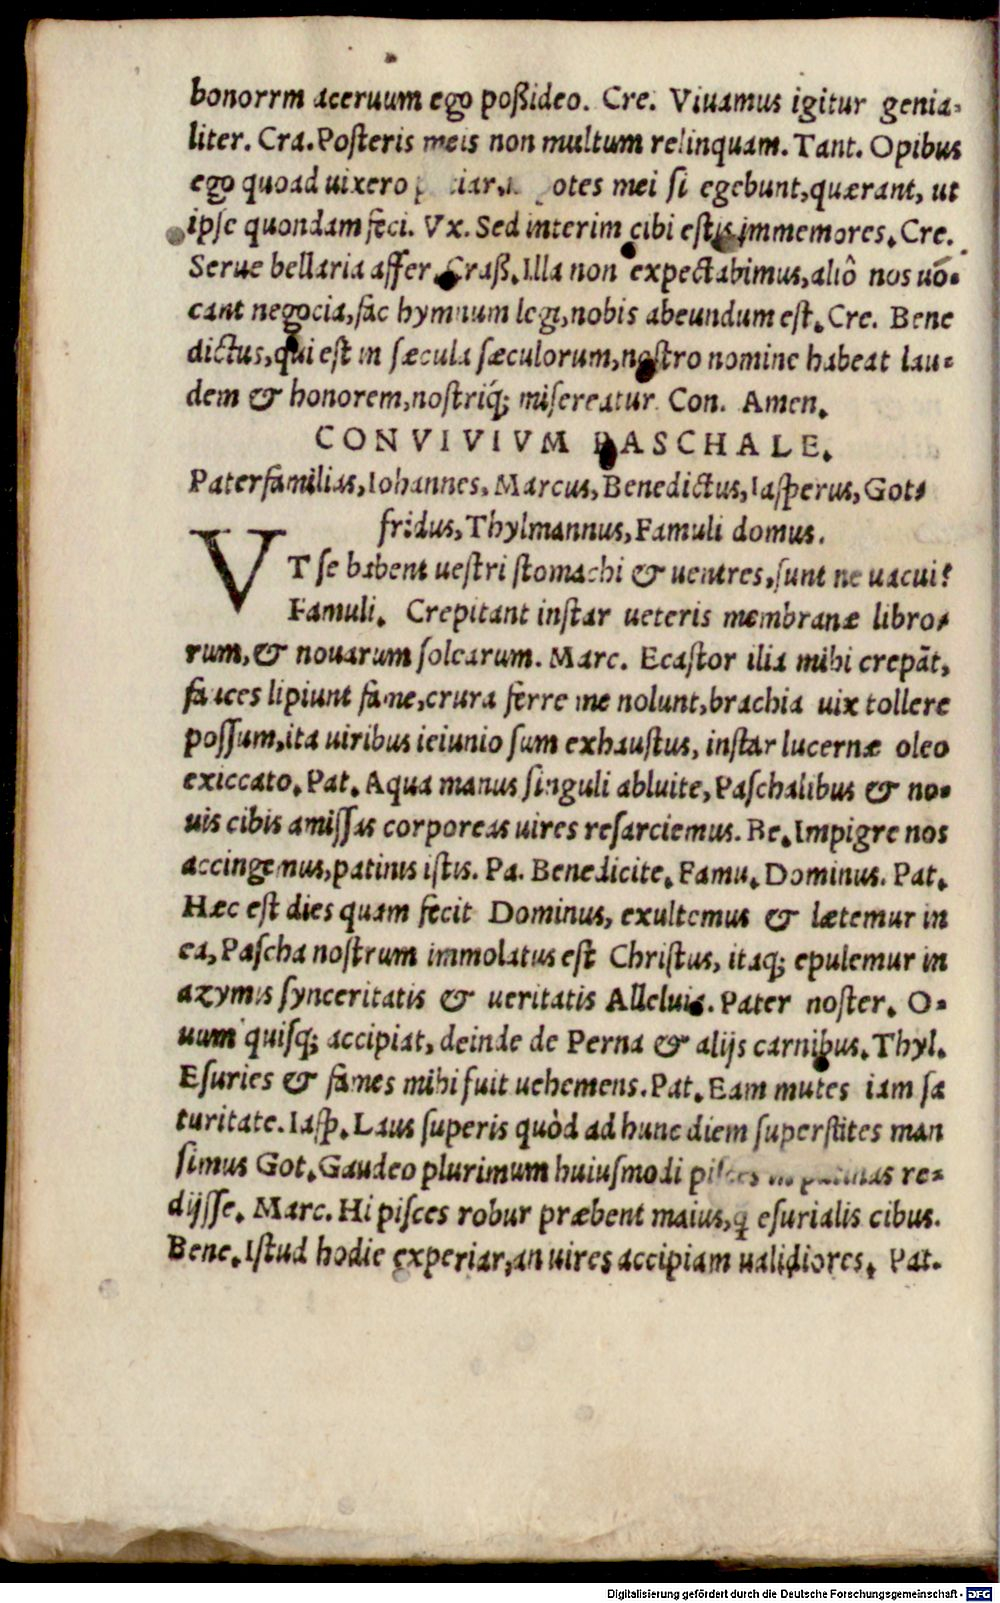 bonorrm aceruum ego poßideo. Cre. Viuamus igitur genia-
liter. Cra. Posteris meis non multum relinquam. Tant. Opibus
ego quoad uixero mei si egebunt, quærant, ut
ipse quondam feci. Vx. Sed interim cibi estis immemores. Cre.
Serue bellaria affer. Craß. Illa non expectabimus, aliô nos uo-
cant negocia, fac hymnum legi, nobis abeundum est. Cre. Bene
dictus, qui est in sæcula sæculorum, nostro nomine habeat lau-
dem & honorem, nostriq́; misereatur. Con. Amen.
CONVIVIVM PASCHALE.
Paterfamilias, Iohannes, Marcus, Benedictus, Iasperus, Got-
fridus, Thylmannus, Famuli domus.
VT se habent uestri stomachi & uentres, sunt ne uacui?
Famuli. Crepitant instar ueteris membranæ libro-
rum, & nouarum solearum. Marc. Ecastor ilia mihi crepãt,
fauces lipiunt fame, crura ferre me nolunt, brachia uix tollere
possum, ita uiribus ieiunio sum exhaustus, instar lucernæ oleo
exiccato. Pat. Aqua manus singuli abluite, Paschalibus & no-
uis cibis amissas corporeas uires resarciemus. Be. Impigre nos
accingemus, patinis istis. Pa. Benedicite. Famu. Dominus. Pat.
Hæc est dies quam fecit Dominus, exultemus & lætemur in
ea, Pascha nostrum immolatus est Christus, itaq; epulemur in
azymis synceritatis & ueritatis Alleluia. Pater noster. O-
uum quisq; accipiat, deinde de Perna & alijs carnibus. Thyl.
Esuries & fames mihi fuit uehemens. Pat. Eam mutes iam sa
turitate. Iasp. Laus superis quòd ad hunc diem superstites man
simus Got. Gaudeo plurimum huiusmodi pisces in patinas re-
dijsse. Marc. Hi pisces robur præbent maius, q̃ esurialis cibus.
Bene. Istud hodie experiar, an uires accipiam ualidiores. Pat.
Digitalisierung gefördert durch die Deutsche Forschungsgemeinschaft - DFG